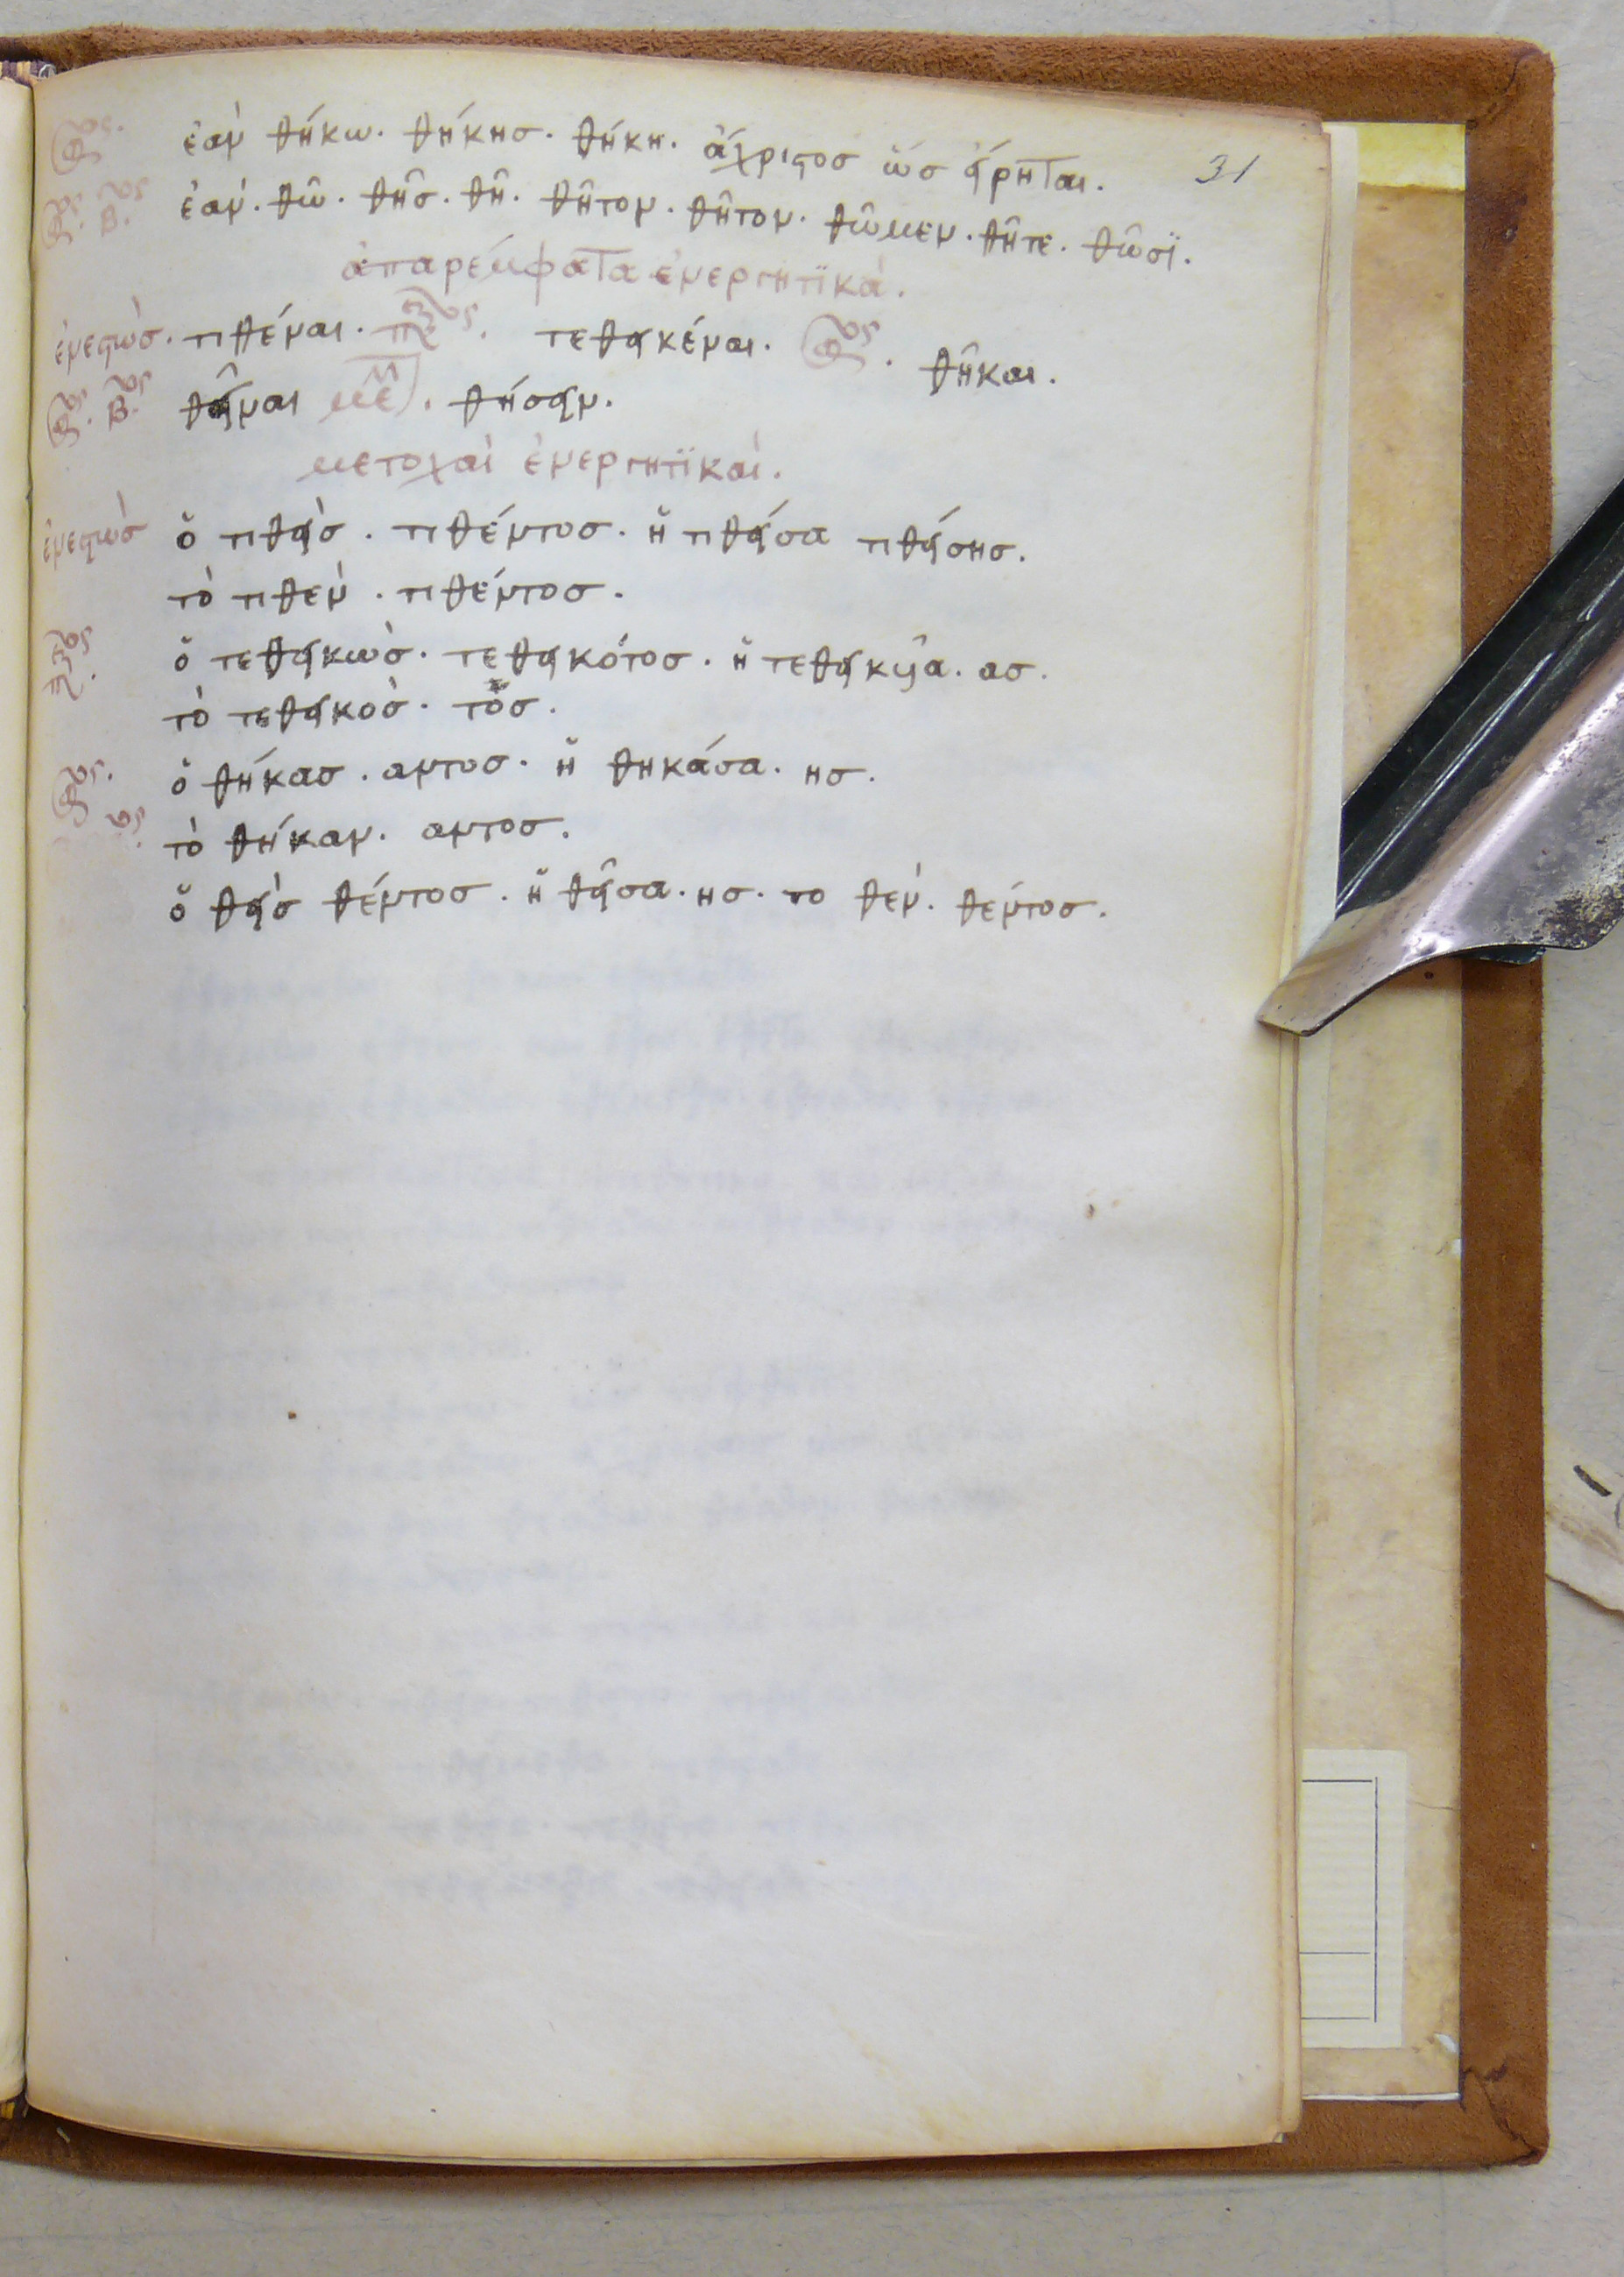 31
ἐὰν θήκω. θήκησ. θήκη. ἀόριστοσ ὡσ εἴρηται.
β. ἐὰν. θῶ. θῆσ. θῆ. θῆτον. θῆτον. θῶμεν. θῆτε. θῶσϊ.
ἀπαρέμφατα ἐνεργητϊκά.
ἐνεστὼσ. τιθέναι. τεθεικέναι. θῆκαι.
β. θεῖναι. θήσειν.
μετοχαὶ ἐνεργητϊκαί.
ἐνεστὼσ ὁ τιθεὶσ. τιθέντοσ. ἡ τιθεῖσα τιθείσησ.
τὸ τιθὲν. τιθέντοσ.
ὁ τεθεικὼσ. τεθεικότοσ. ἡ τεθεικυῖα. ασ.
τὸ τεθεικὸσ. τοσ.
ὁ θήκασ. αντοσ. ἡ θηκάσα. ησ.
τὸ θήκαν. αντοσ.
ὁ θεὶσ θέντοσ. ἡ θεῖσα. ησ. το θὲν. θέντοσ.